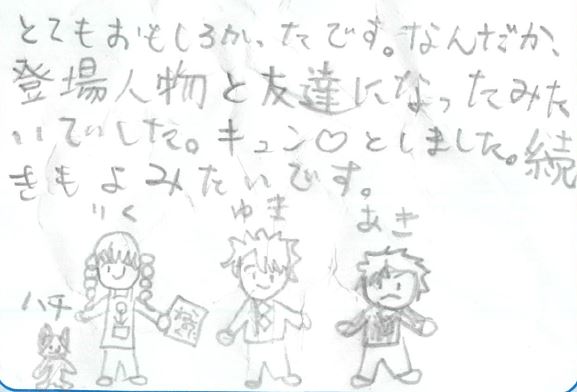 とてもおもしろかったです。なんだか、
登場人物と友達になったみた
いでした。キュン♡としました。続
きもよみたいです。
りく
ゆき
あき
ハチ